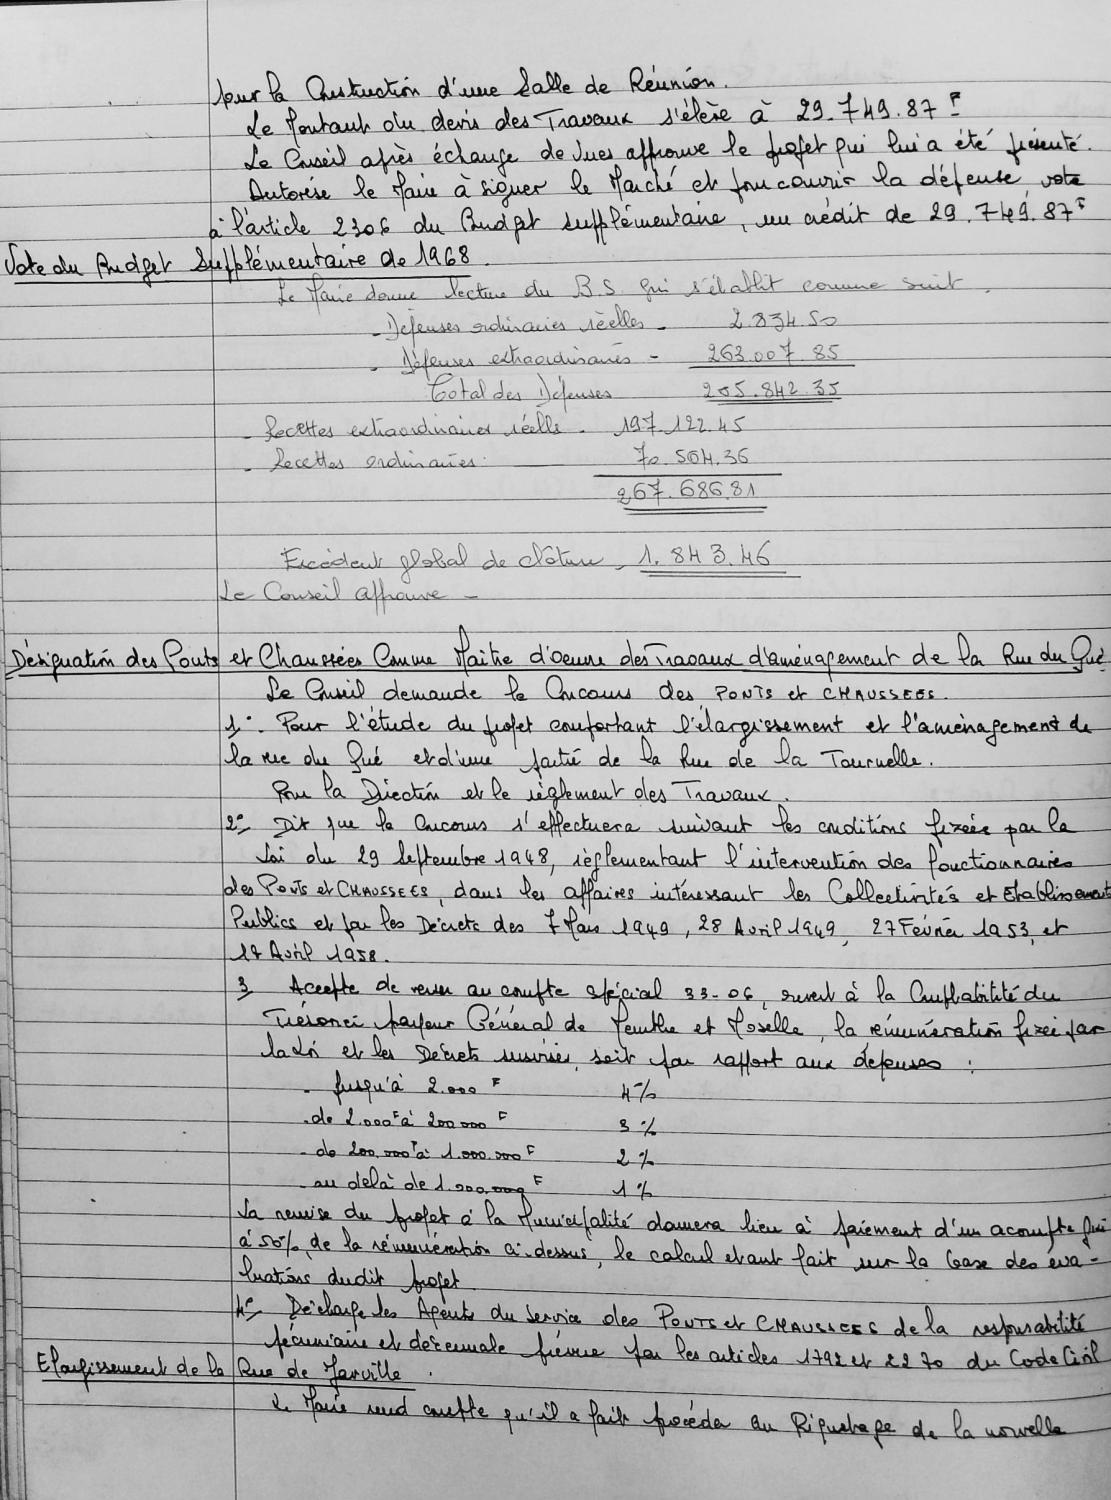 pour la Construction d'une Salle de Réunion.
Le Montant du devis des Travaux s'élève à 29.749.87 F
Le Conseil après échange de vues approuve le projet qui lui a été présenté.
Autorise le Maire à signer le Marché et pour couvrir la dépense, vote
à l'article 2306 du Budget supplémentaire, un crédit de 29.749.87 F
Vote du Budget Supplémentaire de 1968.
Le Maire donne lecture du B.S. qui s'établit comme suit.
- Dépenses ordinaires réelles - 2.834.50
- Dépenses extraordinaires - 263.007.85
Total des Dépenses 265.842.35
- Recettes extraordinaires réelle - 197.122.45
- Recettes ordinaires. 70.564.36
267.686.81
Excédent global de clôture, 1.843.46
Le Conseil approuve -
Désignation des Ponts et Chaussées Comme Maître d'oeuvre des Travaux d'aménagement de la Rue du Gué
Le Conseil demande le Concours des PONTS et CHAUSSEES.
1°. Pour l'étude du projet comportant l'élargissement et l'aménagement de
la rue du Gué et d'une partie de la Rue de la Tournelle.
Pour la Direction et le règlement des Travaux.
2° Dit que le concours s'effectuera suivant les conditions fixées par la
Loi du 29 Septembre 1948, règlementant l'intervention des fonctionnaires
des PONTS et CHAUSSEES, dans les affaires intéressant les Collectivités et Etablissement
Publics et par les Décrets des 7 Mars 1949, 28 Avril 1949, 27 Février 1953, et
17 Avril 1958.
3 Accepte de verser au compte spécial 33-06, ouvert à la Comptabilité du
Trésorier payeur Général de Meurthe et Moselle, la rémunération fixée par
la Loi et les Décrets susvisés, soit par rapport aux dépenses :
- jusqu'à 2.000 F 4%
- de 2.000 F à 200.000 F 3%
- de 200.000 F à 1.000.000 F 2%
- au delà de 1.000.000 F 1%
La remise du projet à la Municipalité donnera lieu à paiement d'un acompte fixé
à 50% de la rémunération ci-dessus, le calcul étant fait sur la base des éva-
luations dudit projet.
4° Décharge les Agents du Service des PONTS et CHAUSSEES de la responsabilité
pécuniaire et décennale prévue par les articles 1792 et 2270 du Code Civil
Elargissement de la Rue de Jarville.
Le Maire rend compte qu'il a fait procéder au Piquetage de la nouvelle